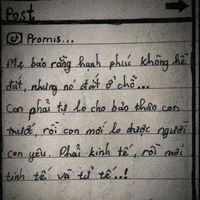 Post
Promis...
Mẹ bảo rằng hạnh phúc không hề
đắt, nhưng nó đắt ở chỗ...
Con phải tự lo cho bản thân con
trước, rồi con mới lo được người
con yêu. Phải kinh tế, rồi mới
tinh tế và tử tế..!